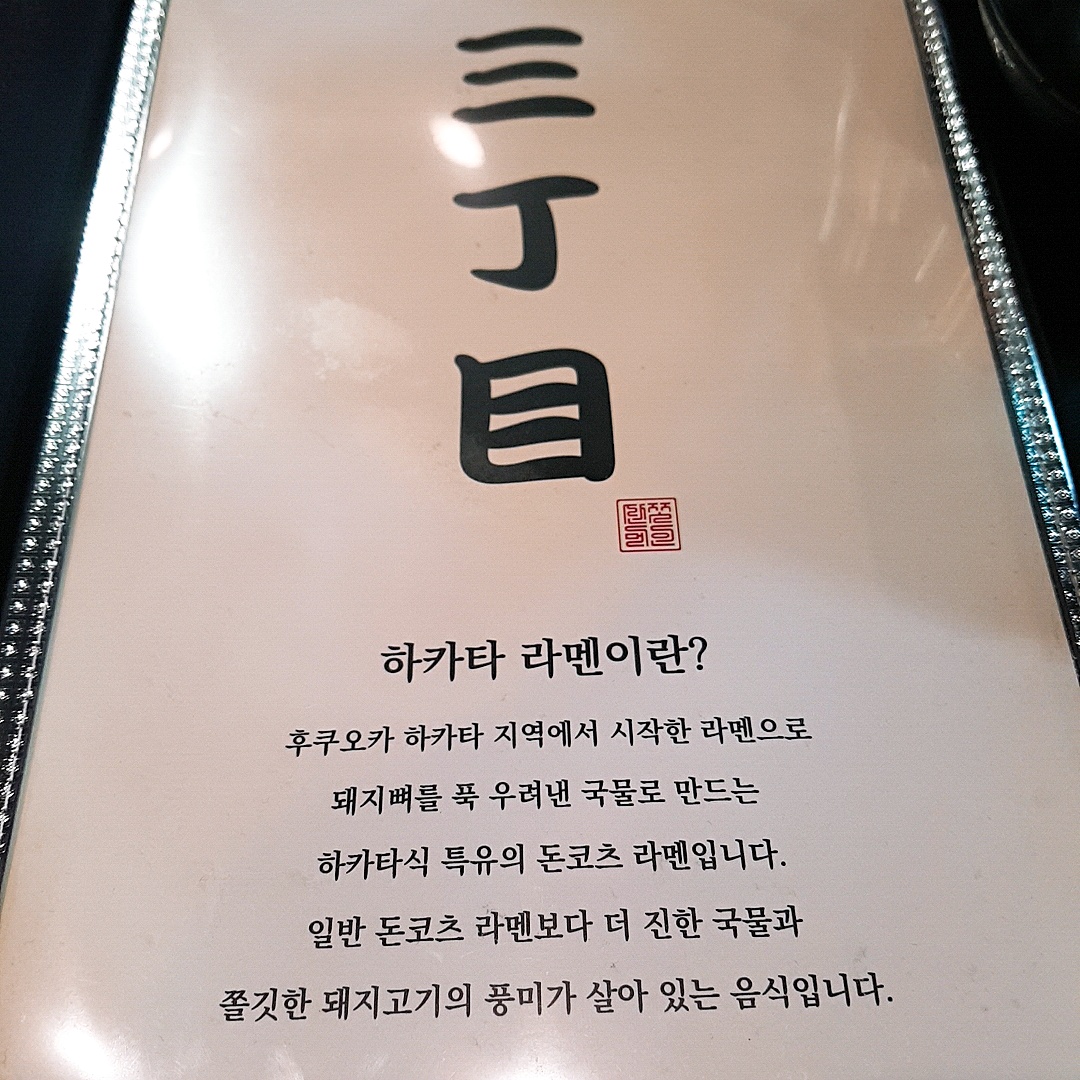 三丁目
하카타 라멘이란?
후쿠오카 하카타 지역에서 시작한 라멘으로
돼지뼈를 푹 우려낸 국물로 만드는
하카타식 특유의 돈코츠 라멘입니다.
일반 돈코츠 라멘보다 더 진한 국물과
쫄깃한 돼지고기의 풍미가 살아 있는 음식입니다.